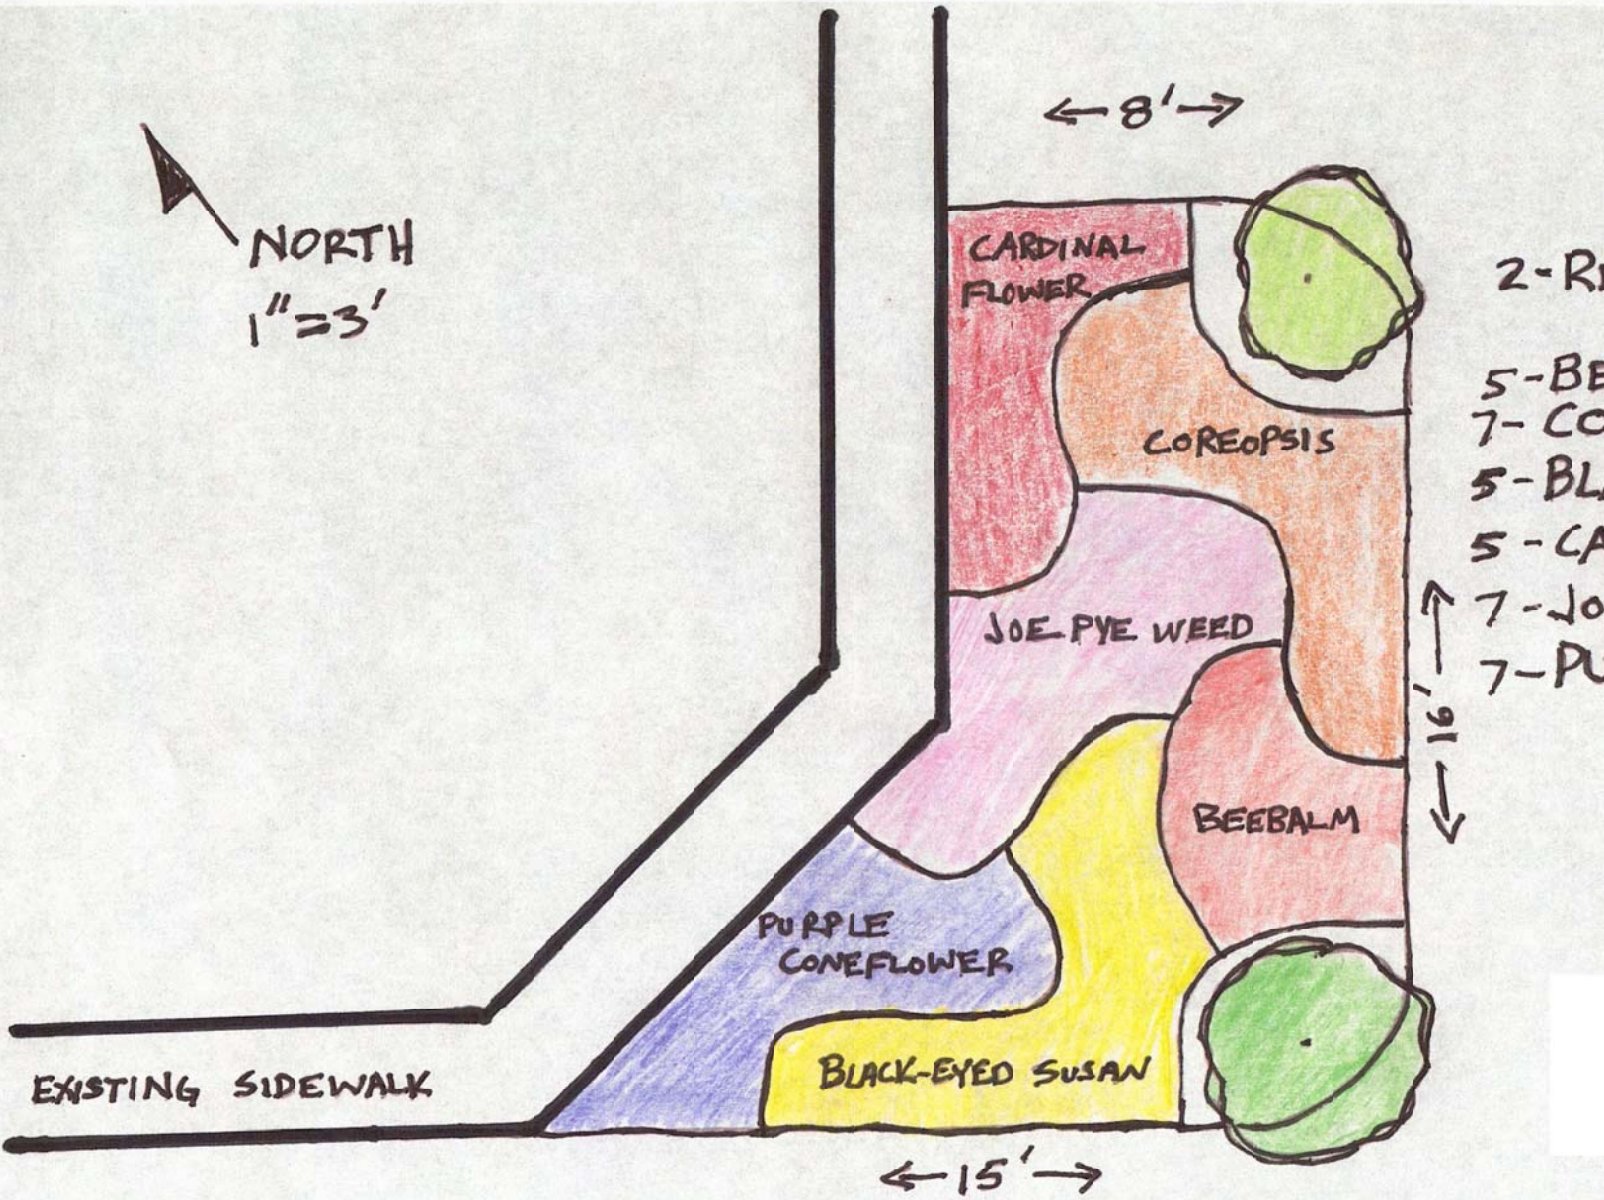 ←8'→
NORTH
1"=3'
CARDINAL
FLOWER
COREOPSIS
JOE PYE WEED
BEEBALM
PURPLE
CONEFLOWER
BLACK-EYED SUSAN
EXISTING SIDEWALK
←16'→
←15'→
2-R
5-BE
7-CO
5-BLA
5-CA
7-JO
7-PU